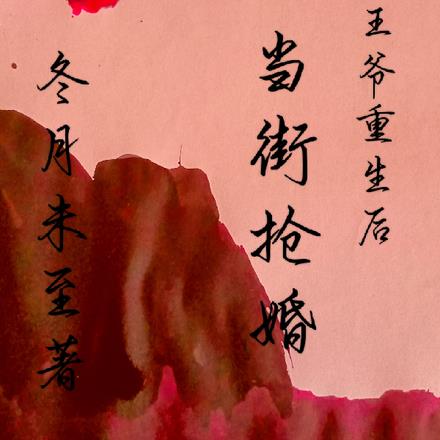 王爷重生后
当街抢婚
冬月未至著